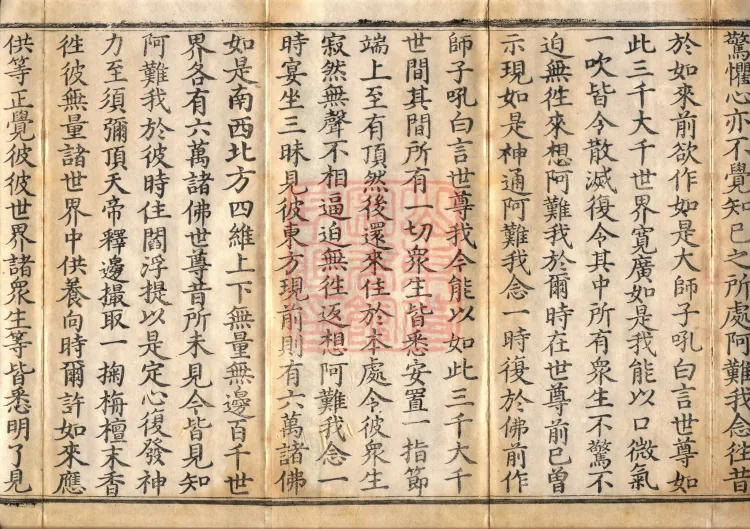 驚懼心亦不覺知已之所處阿難我念徃昔
於如來前欲作如是大師子吼白言世尊如
此三千大千世界寬廣如是我能以口微氣
一吹皆令散滅復令其中所有衆生不驚不
迫無徃來想阿難我於爾時在世尊前已曾
示現如是神通阿難我念一時復於佛前作
師子吼白言世尊我今能以如此三千大千
世間其間所有一切衆生皆悉安置一指節
端上至有頂然後還來住於本處令彼衆生
寂然無聲不相逼迫無徃返想阿難我念一
時宴坐三昧見彼東方現前則有六萬諸佛
如是南西北方四維上下無量無邊百千世
界各有六萬諸佛世尊昔所未見今皆見知
阿難我於彼時住閻浮提以是定心復發神
力至須彌頂天帝釋邊撮取一掬栴檀末香
徃彼無量諸世界中供養向時爾許如來應
供等正覺彼彼世界諸衆生等皆悉明了見